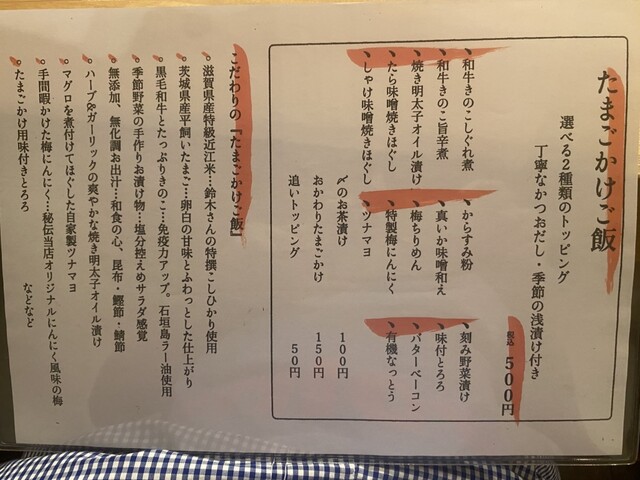 たまごかけご飯
選べる2種類のトッピング
丁寧なかつおだし・季節の浅漬け付き
税込 500円
和牛きのこしぐれ煮
和牛きのこ旨辛煮
焼き明太子オイル漬け
たら味噌焼きほぐし
しゃけ味噌焼きほぐし
からすみ粉
真いか味噌和え
梅ちりめん
特製梅にんにく
ツナマヨ
刻み野菜漬け
味付とろろ
バターベーコン
有機なっとう
〆のお茶漬け 100円
おかわりたまごかけ 150円
追いトッピング 50円
こだわりの『たまごかけご飯』
滋賀県産特級近江米…鈴木さんの特撰こしひかり使用
茨城県産平飼いたまご…卵白の甘味とふわっとした仕上がり
黒毛和牛とたっぷりきのこ…免疫力アップ。石垣島ラー油使用
季節野菜の手作りお漬け物…塩分控えめサラダ感覚
無添加、無化調お出汁…和食の心、昆布・鰹節・鯖節
ハーブ&ガーリックの爽やかな焼き明太子オイル漬け
マグロを煮付けてほぐした自家製ツナマヨ
手間暇かけた梅にんにく…秘伝当店オリジナルにんにく風味の梅
たまごかけ用味付きとろろ などなど